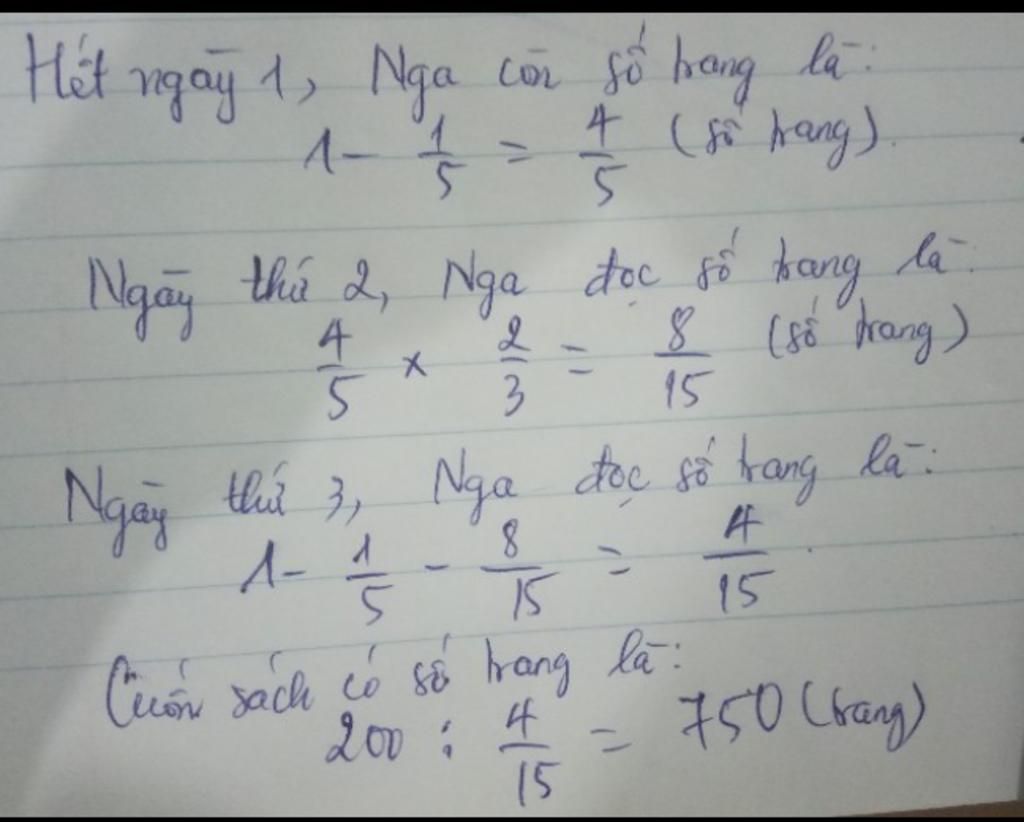 Hết ngày 1, Nga còn số trang là:
1 - 1/5 = 4/5 (số trang).
Ngày thứ 2, Nga đọc số trang là:
4/5 x 2/3 = 8/15 (số trang)
Ngày thứ 3, Nga đọc số trang là:
1 - 1/5 - 8/15 = 4/15.
Cuốn sách có số trang là:
200 : 4/15 = 750 (trang)